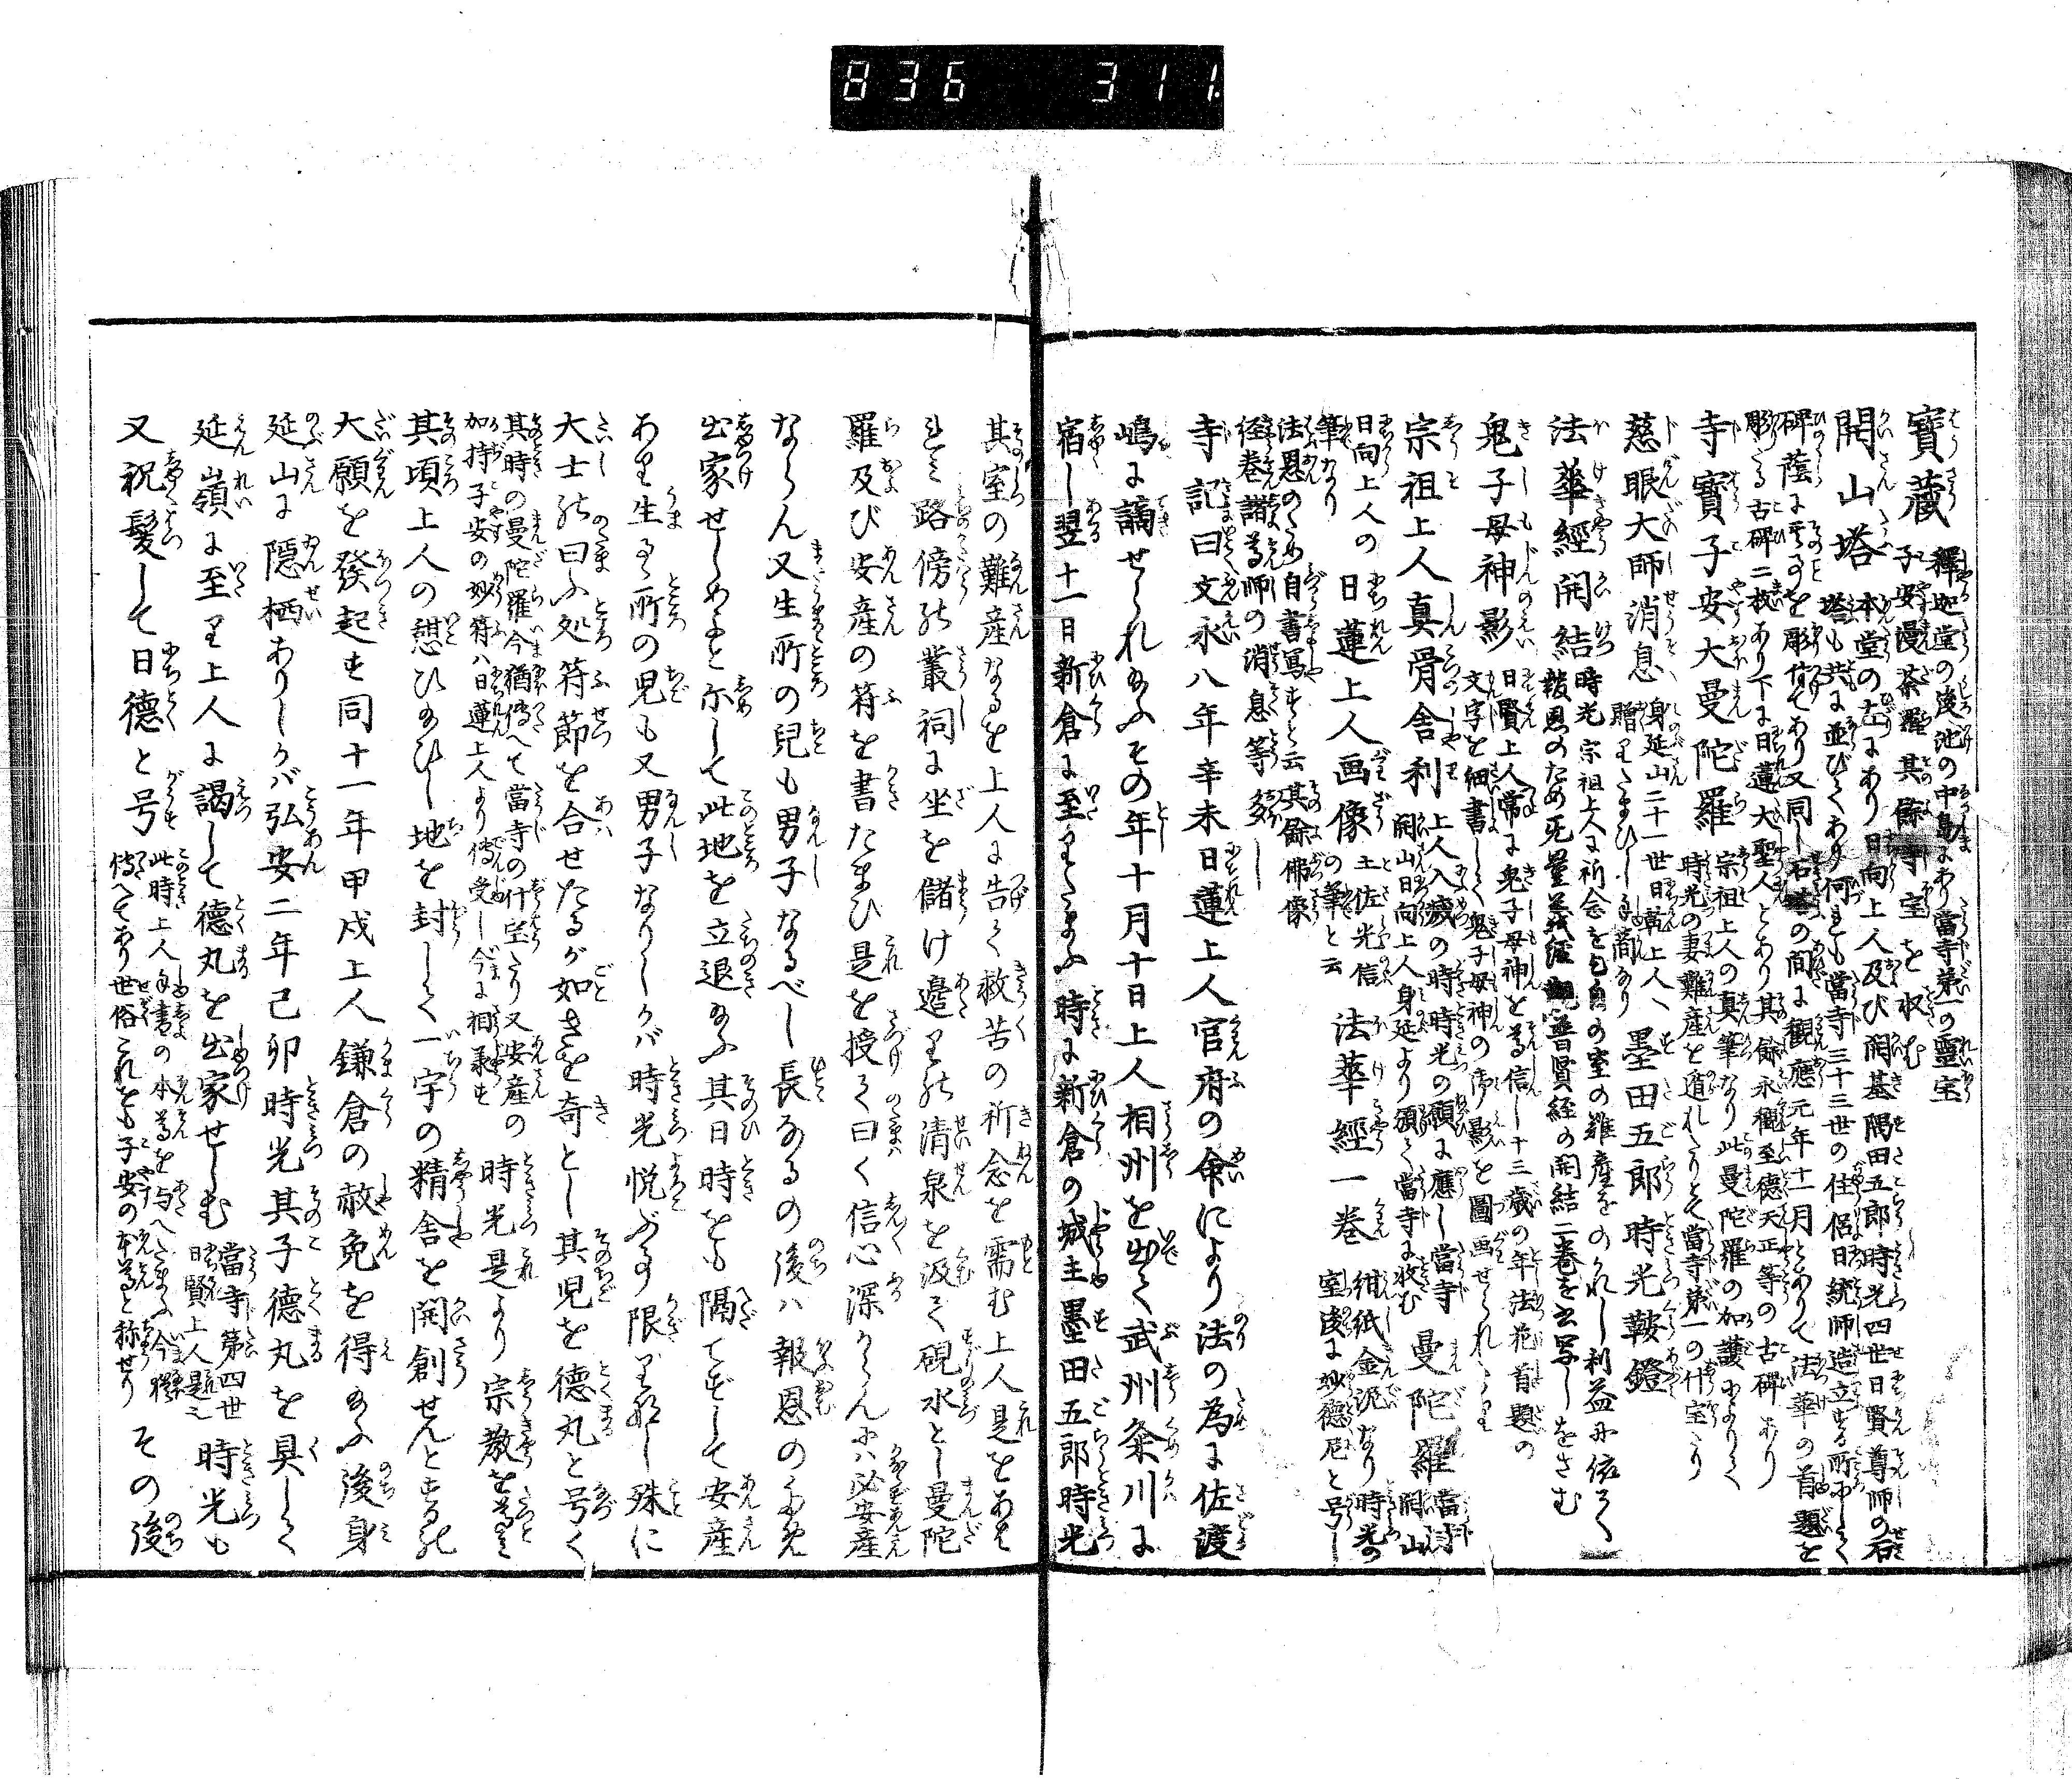 836 311
寳蔵 釋迦堂の後池の中島にあり當寺第一の霊宝
子安曼荼羅其餘寺宝を収む
開山塔 本堂の左にあり日向上人及び開基隅田五郎時光四世日賢尊師の石
塔も共に並びてあり何れも當寺三十三世の住侶日統師造立する所にして
碑蔭に其事を彫付てあり又同し石塔の間に觀應元年十一月とありて法華の首題を
彫たる古碑二枚あり下に日蓮大聖人とあり其餘永和至德天正等の古碑あり
寺寳子安大曼陀羅 宗祖上人の真筆なり此曼陀羅の加護によりて
時光の妻難産を遁れたりとて當寺第一の什宝たり
慈眼大師消息 身延山二十一世日乾上人へ
贈りたまひし手簡なり 墨田五郎時光鞍鐙
法華經開結 時光宗祖上人に祈念を乞自の室の難産をのかれし利益に依て
報恩のため無量義経観普賢経の開結二巻を書写しをさむ
鬼子母神影 日賢上人常に鬼子母神を尊信し十三歳の年法花首題の
文字を細書して鬼子母神の御影を圖画せられたり
宗祖上人真骨舎利 上人入滅の時時光の願に應し當寺
開山日向上人身延より頒て當寺に收む 曼陀羅 當寺開山
日向上人の筆なり 日蓮上人画像 土佐光信の筆と云 法華經一巻 紺紙金泥なり時光の
室後に妙德尼と号し
法恩のため自書写すと云其餘佛像
経巻諸尊師の消息等多し
寺記曰文永八年辛未日蓮上人官府の命により法の為に佐渡
嶋に謫せられ給ふその年十月十日上人相州を出て武州粂川に
宿し翌十一日新倉に至りたまふ時に新倉の城主墨田五郎時光
其室の難産なるを上人に告て救苦の祈念を需む上人是をあは
れミ路傍の叢祠に坐を儲け邉りの清泉を汲て硯水とし曼陀
羅及び安産の符を書たまひ是を授て曰く信心深からんにハ必安産
ならん又生所の兒も男子なるべし長なるの後ハ報恩のため
出家せしめよと示して此地を立退給ふ其日時をも隔てずして安産
あり生るゝ所の児も又男子なりしかバ時光悦ぶ事限りなし殊に
大士の曰ふ処符節を合せたるが如きを奇とし其児を德丸と号く
其時の曼陀羅今猶傳へて當寺の什宝たり又安産の
加持子安の妙符ハ日蓮上人より傳受し今に相承す 時光是より宗教を尊み
其頃上人の憩ひ給ひし地を封して一宇の精舎を開創せんとするの
大願を發起す同十一年甲戌上人鎌倉の赦免を得給ふ後身
延山に隠栖ありしかバ弘安二年己卯時光其子德丸を具して
延嶺に至り上人に謁して德丸を出家せしむ 當寺第四世
日賢上人是なり 時光も
又祝髪して日德と号す 此時上人手書の本尊を与へたまふ今猶
傳へてあり世俗これをも子安の本尊と称せり その後